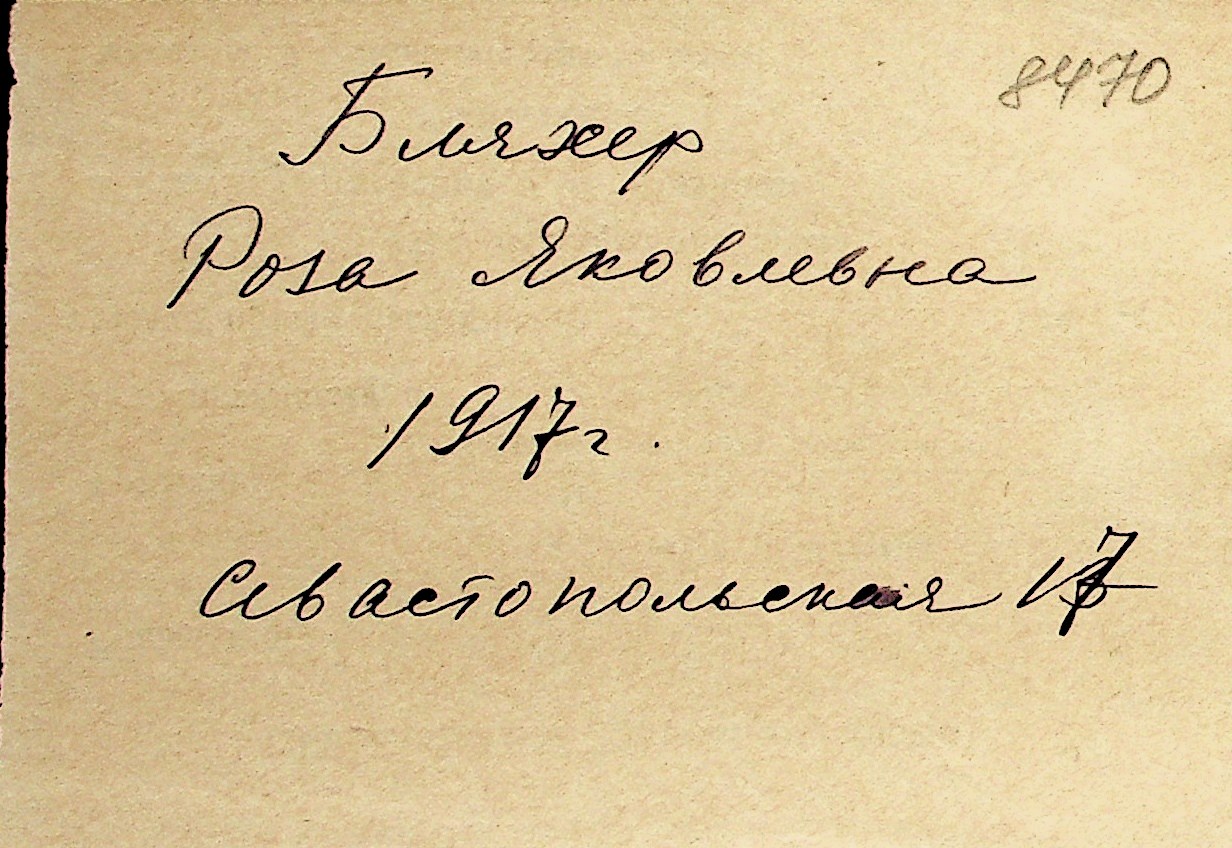 8470
Бляхер
Роза Яковлевна
1917г.
Севастопольская